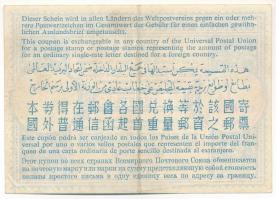 Dieser Schein wird in allen Ländern des Weltpostvereins gegen ein oder meh-
rere Postwertzeichen im Gesamtwert der Gebühr für einen einfachen gewöhn-
lichen Auslandsbrief umgetauscht.
This coupon is exchangeable in any country of the Universal Postal Union
for a postage stamp or postage stamps representing the amount of postage
for an ordinary single-rate letter destined for a foreign country.
本券得在郵會各國兌換等於該國寄
國外普通信函起首重量郵資之郵票
Este cupón podrá ser canjeado en todos los Países de la Unión Postal Uni-
versal por uno o varios sellos postales que representen el importe del fran-
queo de una carta ordinaria de porte sencillo destinada al extranjero.
Этот купон во всех странах Всемирного Почтового Союза обменивается
на почтовую марку или марки на сумму представляющую собой стоимость
оплаты простого письма в одну единицу веса по адресу за границу.